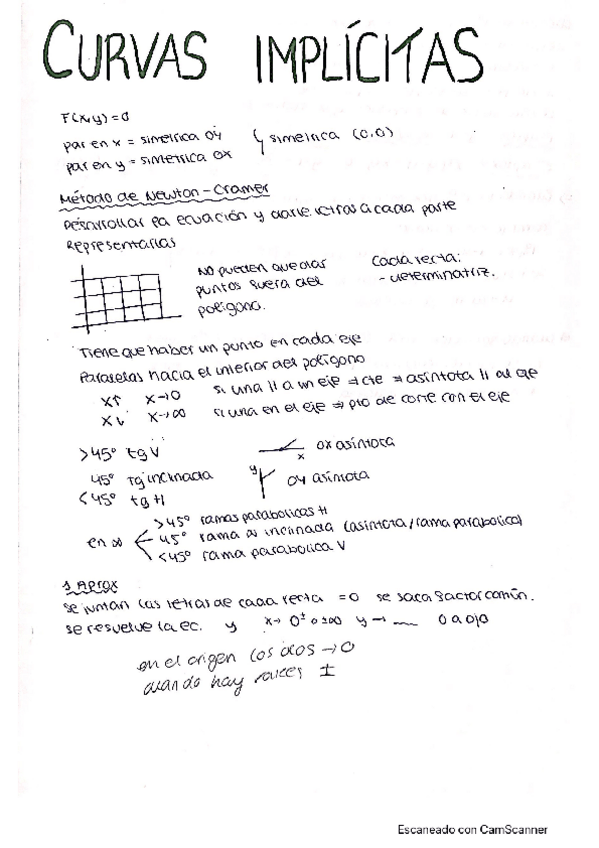 CURVAS IMPLÍCITAS
F(x,y)=0
par en x = simetrica OY
par en y = simetrica OX
} simetrica (0,0)
Método de Newton-Cramer
Desarrollar la ecuación y darle letras a cada parte
Representarlas
No pueden quedar
puntos fuera del
polígono.
Cada recta:
- determinatriz.
Tiene que haber un punto en cada eje
Paralelas hacia el interior del polígono
x↑ x→0 si una // a un eje ⇒ cte ⇒ asíntota // al eje
x↓ x→∞ si una en el eje ⇒ pto de corte con el eje
>45° tg V
45° Tg inclinada
<45° tg H
x OX asíntota
y OY asíntota
en ∞
>45° ramas parabolicas H
45° rama ∞ inclinada (asíntota/rama parabolica)
<45° rama parabolica V
1 Aprox
Se juntan las letras de cada recta =0 se saca factor común.
se resuelve la ec. y x→ 0± o ±∞ y→ __ o a ojo
en el origen los dos → 0
cuando hay raices ±
Escaneado con CamScanner